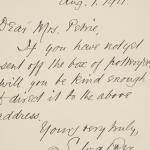 Aug. 1, 1911.
Dear Mrs. Petrie,
If you have not yet
sent off the box of pottery,
will you be kind enough
to direct it to the above
address.
Yours very truly,